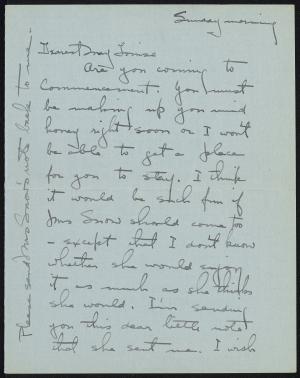 Sunday morning
Dearest May Louise
Are you coming to
Commencement. You must
be making up you mind
honey right soon or I won't
be able to get a place
for you to stay. I think
it would be such fun if
Mrs Snow should come too
– except that I don't know
whether she would enjoy
it as much as she thinks
she would. I'm sending
you this dear little note
that she sent me. I wish
Please send Mrs Snow's note back to me.